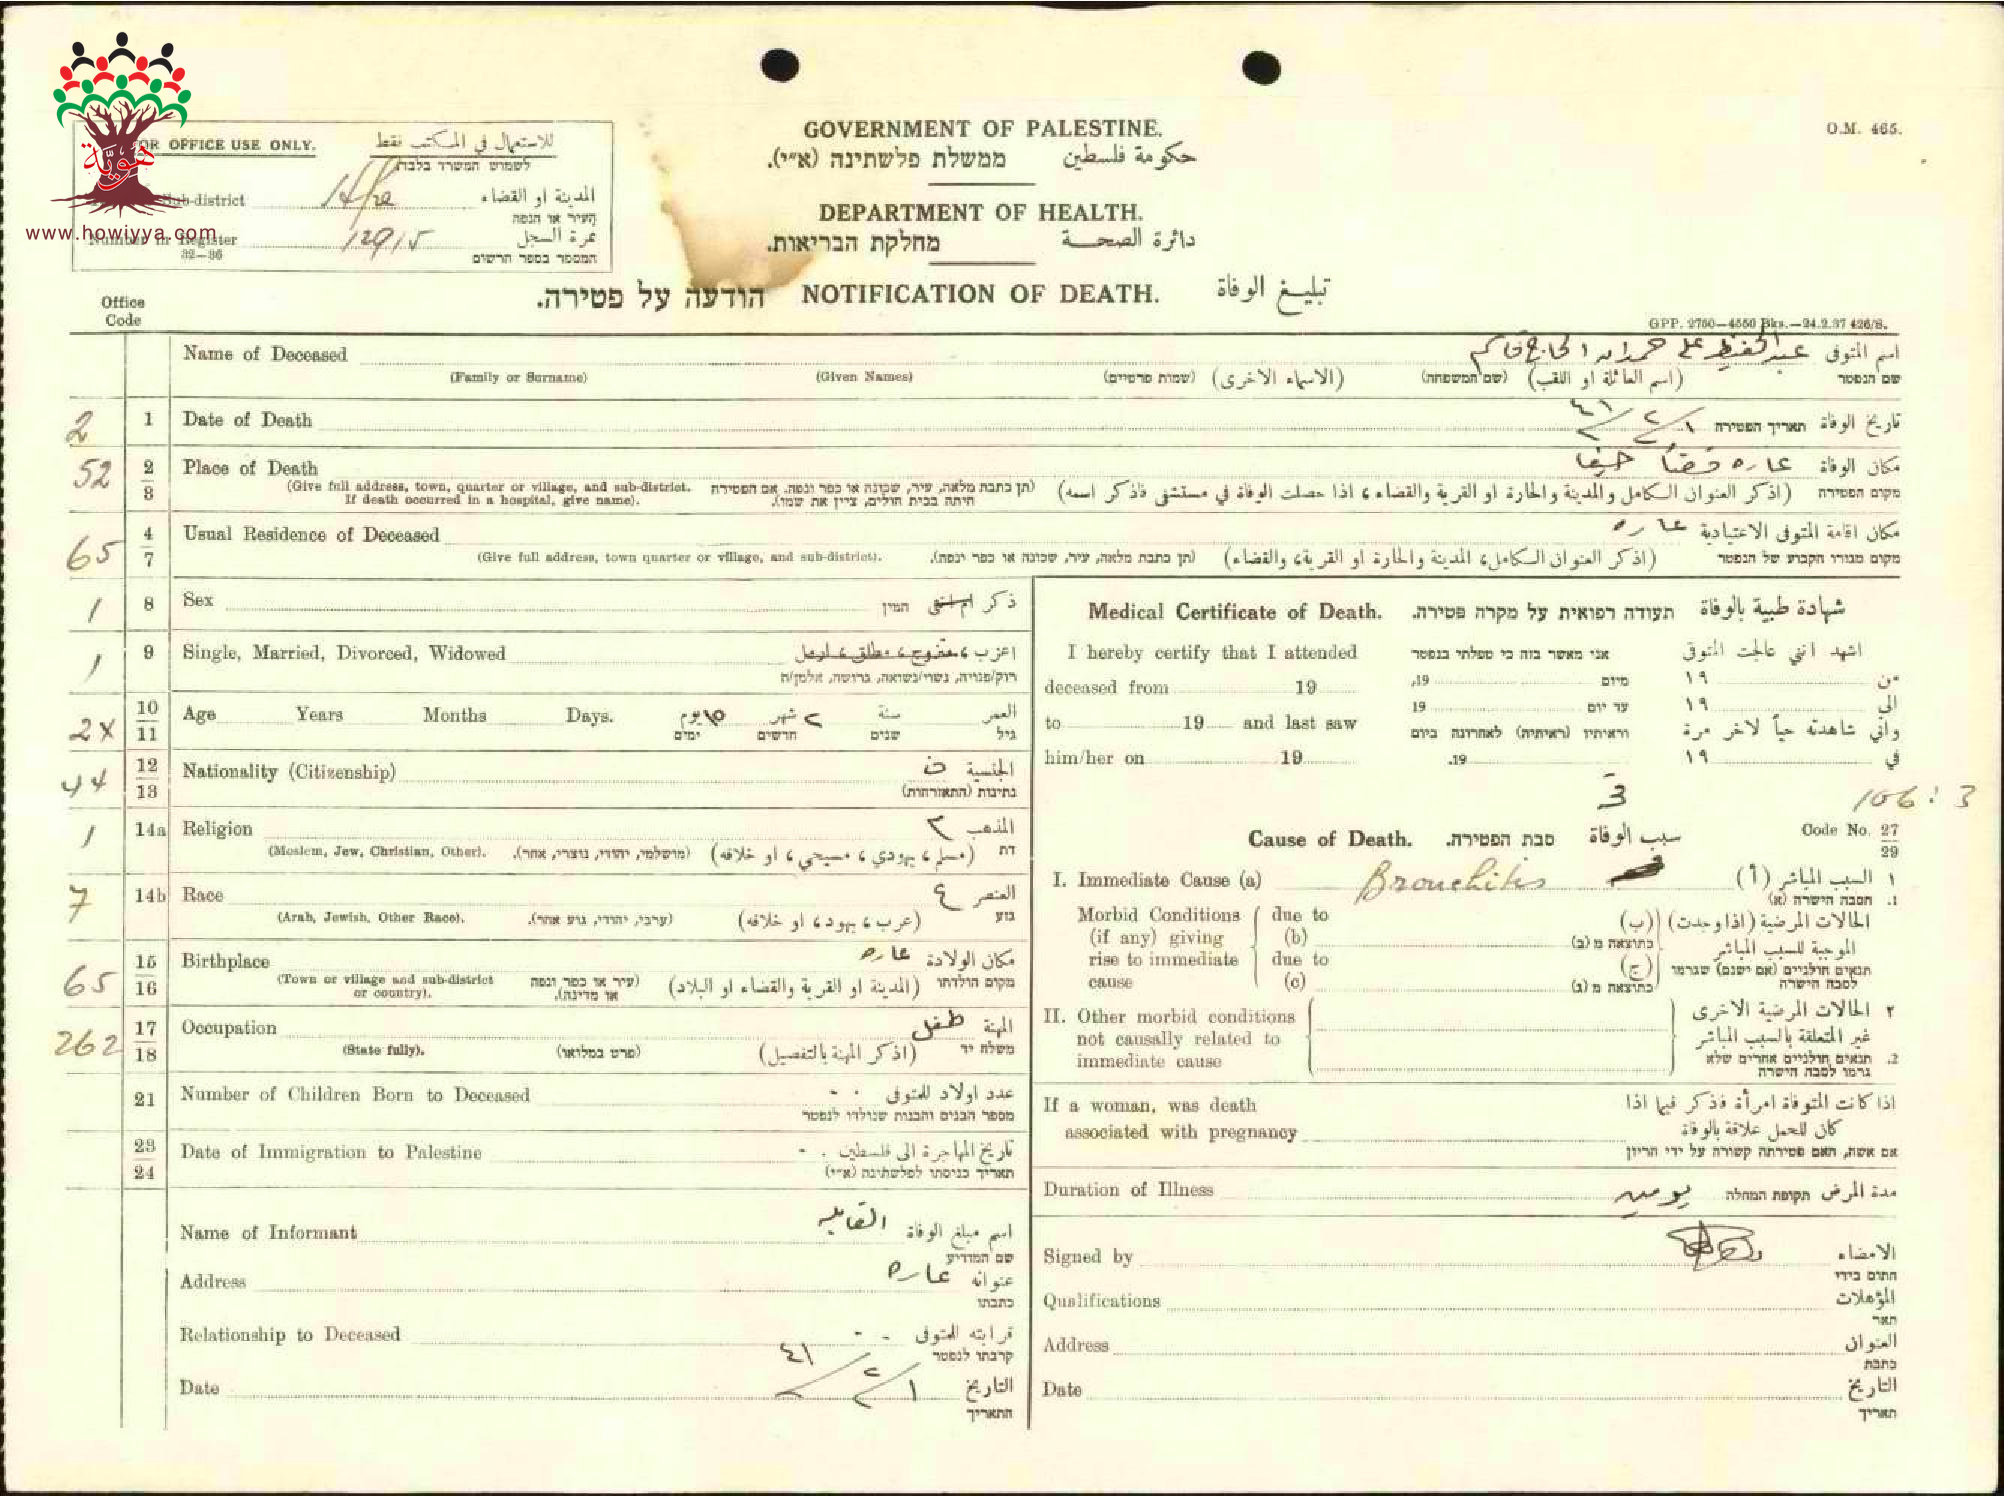 هويّة
www.howiyya.com
FOR OFFICE USE ONLY. للاستعمال في المكتب فقط
לשמוש המשרד בלבד
Sub-district المدينة او القضاء
העיר או הנפה
Number in Register 12915 نمرة السجل
32—36 המספר בספר הרשום
GOVERNMENT OF PALESTINE.
ממשלת פלשתינה (א״י). حكومة فلسطين
DEPARTMENT OF HEALTH.
מחלקת הבריאות. دائرة الصحة
O.M. 465.
הודעה על פטירה. NOTIFICATION OF DEATH. تبليغ الوفاة
GPP. 2760—4550 Bks.—24.2.37 426/S.
Office
Code
Name of Deceased عبد الحفيظ علي حمدان الحاج قاسم اسم المتوفى
(Family or Surname) (Given Names) (שמות פרטיים) (الاسماء الاخرى) (שם המשפחה) (اسم العائلة او اللقب) שם הנפטר
2 1 Date of Death ١/٢/٤١ תאריך הפטירה تاريخ الوفاة
52 2 Place of Death عاره قضا حيفا مكان الوفاة
3 (Give full address, town, quarter or village, and sub-district. תן כתבת מלאה, עיר, שכונה או כפר ונפה. אם הפטירה (اذكر العنوان الكامل والمدينة والحارة او القرية والقضاء، اذا حصلت الوفاة في مستشفى فاذكر اسمه) מקום הפטירה
If death occurred in a hospital, give name). היתה בבית חולים, ציין את שמו).
65 4 Usual Residence of Deceased عاره مكان اقامة المتوفى الاعتيادية
7 (Give full address, town quarter or village, and sub-district). (תן כתבת מלאה, עיר, שכונה או כפר ונפה). (اذكر العنوان الكامل، المدينة والحارة او القرية، والقضاء) מקום מגורו הקבוע של הנפטר
1 8 Sex המין ذكر ام انثى
1 9 Single, Married, Divorced, Widowed اعزب، متزوج، مطلق، ارمل
רוק/פנויה, נשוי/נשואה, גרושה, אלמן/ה
2x 10 Age Years Months Days. ١٥ יום ٢ شهر سنة العمر
11 ימים חדשים שנים גיל
44 12 Nationality (Citizenship) ف الجنسية
13 נתינות (התאזרחות)
1 14a Religion م المذهب
(Moslem, Jew, Christian, Other). (מושלמי, יהודי, נוצרי, אחר). (مسلم، يهودي، مسيحي، او خلافه) דת
7 14b Race ع العنصر
(Arab, Jewish, Other Race). (ערבי, יהודי, גזע אחר). (عرب، يهود، او خلافه) גזע
65 15 Birthplace عاره مكان الولادة
16 (Town or village and sub-district (עיר או כפר ונפה (المدينة او القرية والقضاء او البلاد) מקום הולדתו
or country). או מדינה).
262 17 Occupation طفل المهنة
18 (State fully). (פרט במלואו) (اذكر المهنة بالتفصيل) משלח יד
21 Number of Children Born to Deceased - - عدد اولاد المتوفى
מספר הבנים והבנות שנולדו לנפטר
23 Date of Immigration to Palestine - - تاريخ المهاجرة الى فلسطين
24 תאריך כניסתו לפלשתינה (א״י)
Name of Informant اسم مبلغ الوفاة
שם המודיע
Address عاره عنوانه
כתבתו
Relationship to Deceased - - قرابته للمتوفى
קרבתו לנפטר
Date ١/٢/٤١ التاريخ
התאריך
Medical Certificate of Death. תעודה רפואית על מקרה פטירה. شهادة طبية بالوفاة
I hereby certify that I attended אני מאשר בזה כי טפלתי בנפטר اشهد انني عالجت المتوفى
deceased from 19 19, מיום ١٩ من
to 19 and last saw 19 עד יום ١٩ الى
וראיתיו (ראיתיה) לאחרונה ביום واني شاهدته حياً لاخر مرة
him/her on 19 19. ١٩ في
3 106 : 3
Cause of Death. סבת הפטירה. سبب الوفاة Code No. 27
29
I. Immediate Cause (a) Bronchitis ١ السبب المباشر (أ)
1. הסבה הישרה (א)
Morbid Conditions due to الحالات المرضية (اذا وجدت) (ب)
(if any) giving (b) כתוצאה מ (ב) الموجبة للسبب المباشر
rise to immediate due to תנאים חולניים (אם ישנם) שגרמו (ج)
cause (c) כתוצאה מ (ג) לסבה הישרה
II. Other morbid conditions ٢ الحالات المرضية الاخرى
not causally related to غير المتعلقة بالسبب المباشر
immediate cause 2. תנאים חולניים אחרים שלא
גרמו לסבה הישרה
If a woman, was death اذا كانت المتوفاة امرأة فذكر فيما اذا
associated with pregnancy كان للحمل علاقة بالوفاة
אם אשה, האם פטירתה קשורה על ידי הריון
Duration of Illness يومين תקופת המחלה مدة المرض
Signed by الامضاء
חתום בידי
Qualifications المؤهلات
תאר
Address العنوان
כתבת
Date التاريخ
תאריך